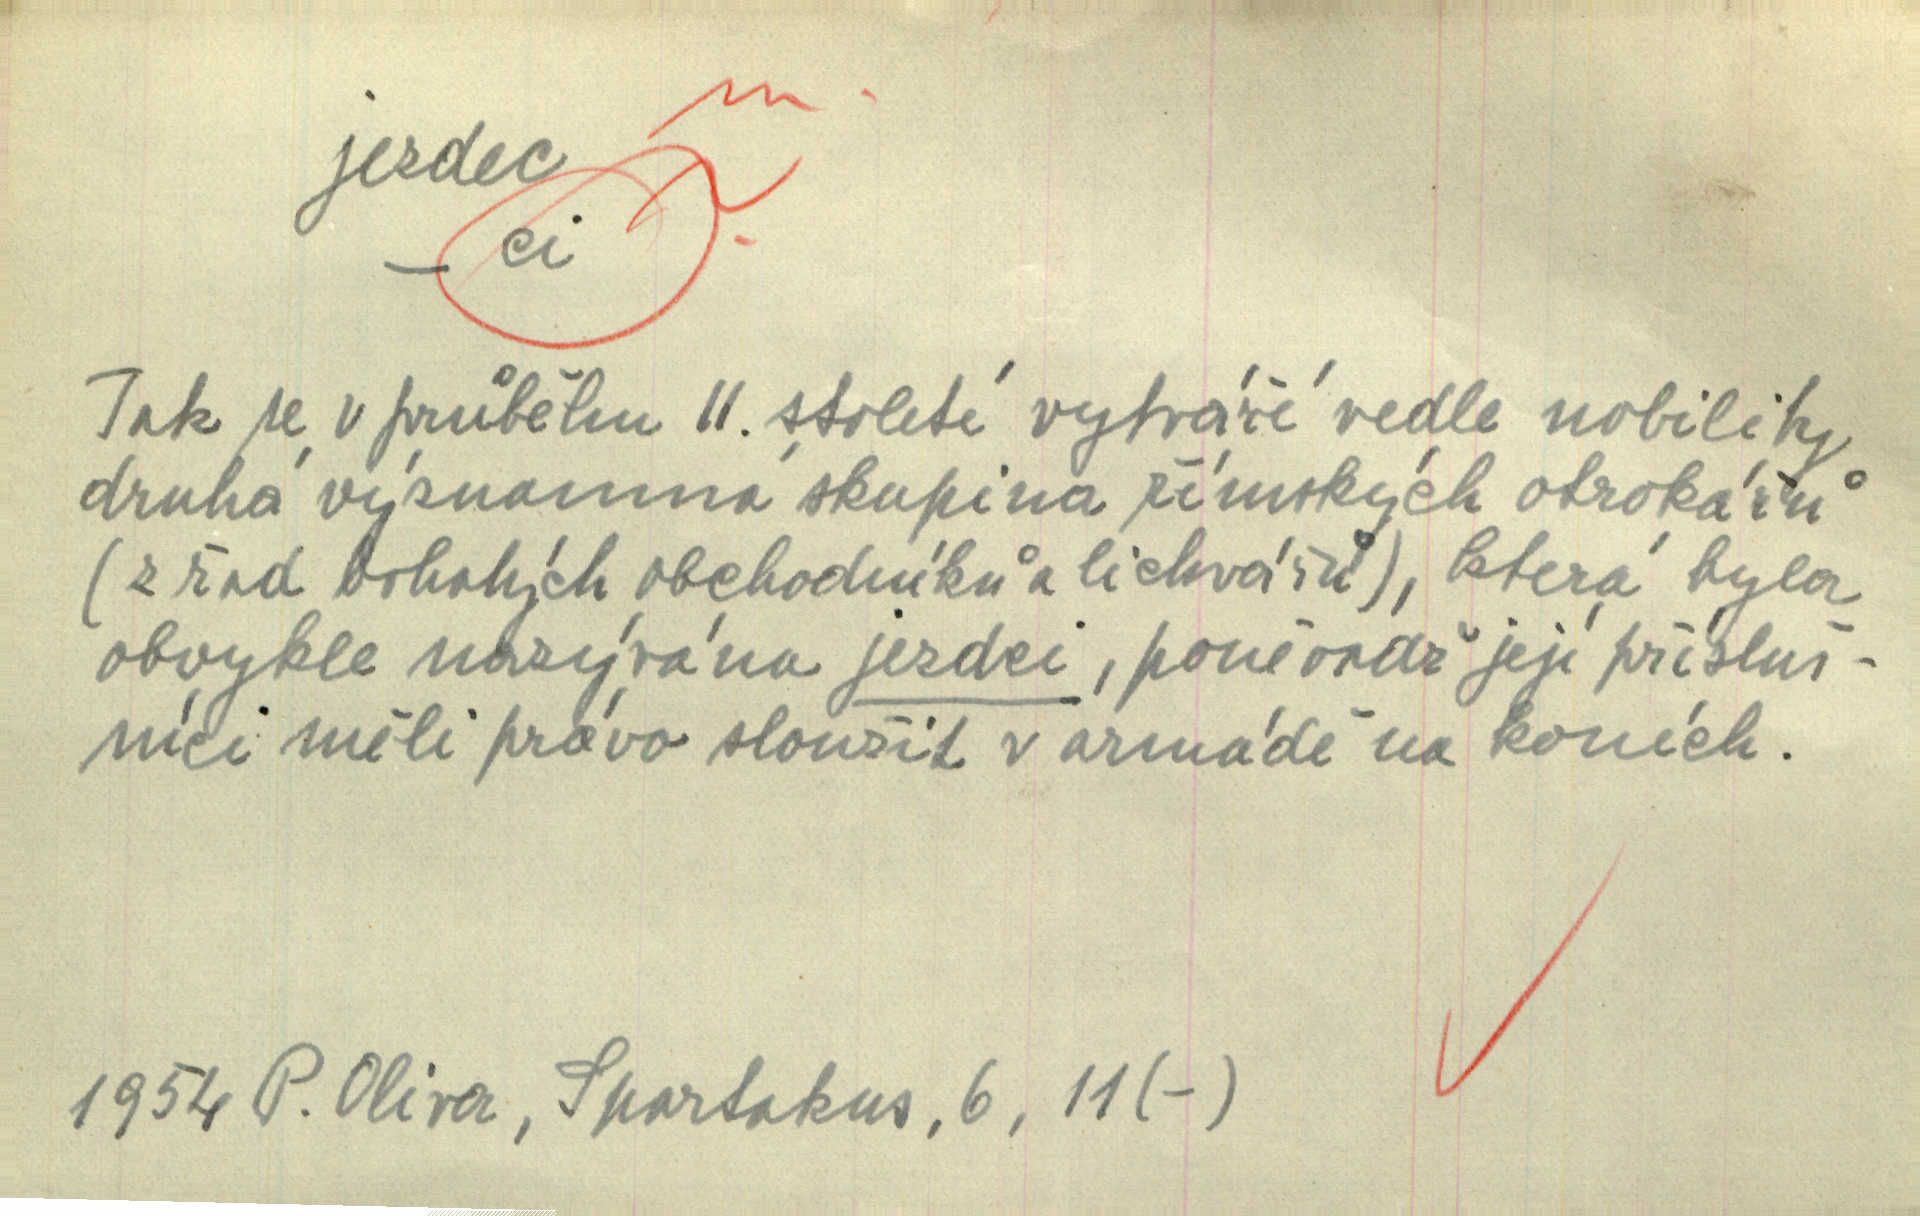 jezdec
– ci
Tak se v průběhu II. století vytváří vedle nobility
druhá významná skupina římských otrokářů
(z řad bohatých obchodníků a lichvářů), která byla
obvykle nazývána jezdci, poněvadž její přísluš-
níci měli právo sloužit v armádě na koních.
1954 P. Oliva, Spartakus, 6, 11 (-)